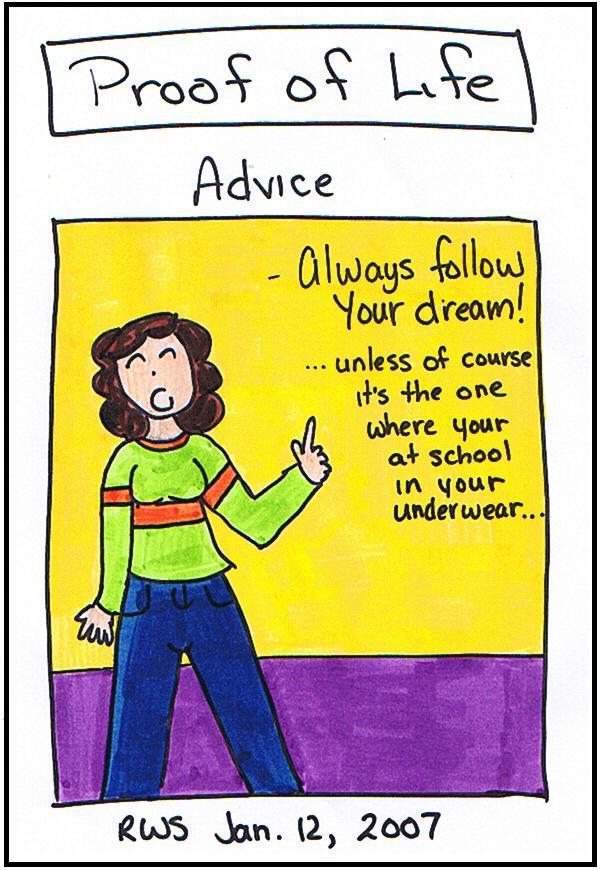 Proof of Life
Advice
- Always follow
Your dream!
... unless of course
it's the one
where your
at school
in your
underwear...
RWS Jan. 12, 2007